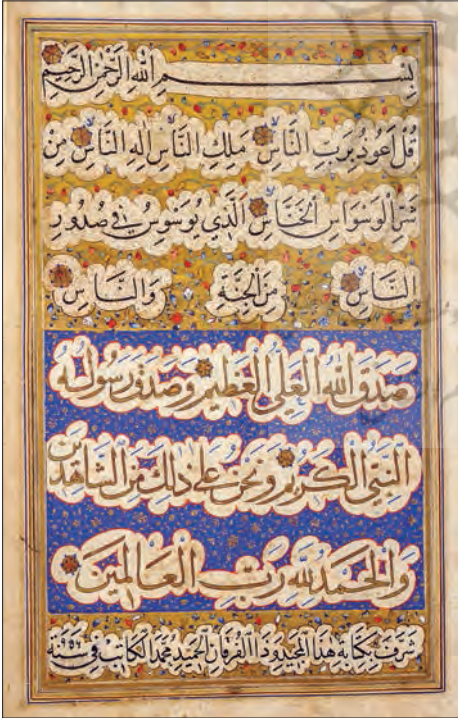 بِسْمِ اللّٰهِ الرَّحْمٰنِ الرَّحِيْمِ
قُلْ اَعُوذُ بِرَبِّ النَّاسِ مَلِكِ النَّاسِ اِلٰهِ النَّاسِ مِنْ
شَرِّ الْوَسْوَاسِ الْخَنَّاسِ اَلَّذِي يُوَسْوِسُ فِي صُدُورِ
النَّاسِ مِنَ الْجِنَّةِ وَالنَّاسِ
صَدَقَ اللّٰهُ الْعَلِيُّ الْعَظِيْمُ وَصَدَقَ رَسُولُهُ
النَّبِيُّ الْكَرِيْمُ وَنَحْنُ عَلٰى ذٰلِكَ مِنَ الشَّاهِدِيْنَ
وَالْحَمْدُ لِلّٰهِ رَبِّ الْعَالَمِيْنَ
شَرُفَ بِكِتَابَةِ هٰذَا الْمَجِيْدِ وَذَا الْفُرْقَانِ الْحَمِيْدِ مُحَمَّدُ الْكَاتِبُ فِي سَنَةِ